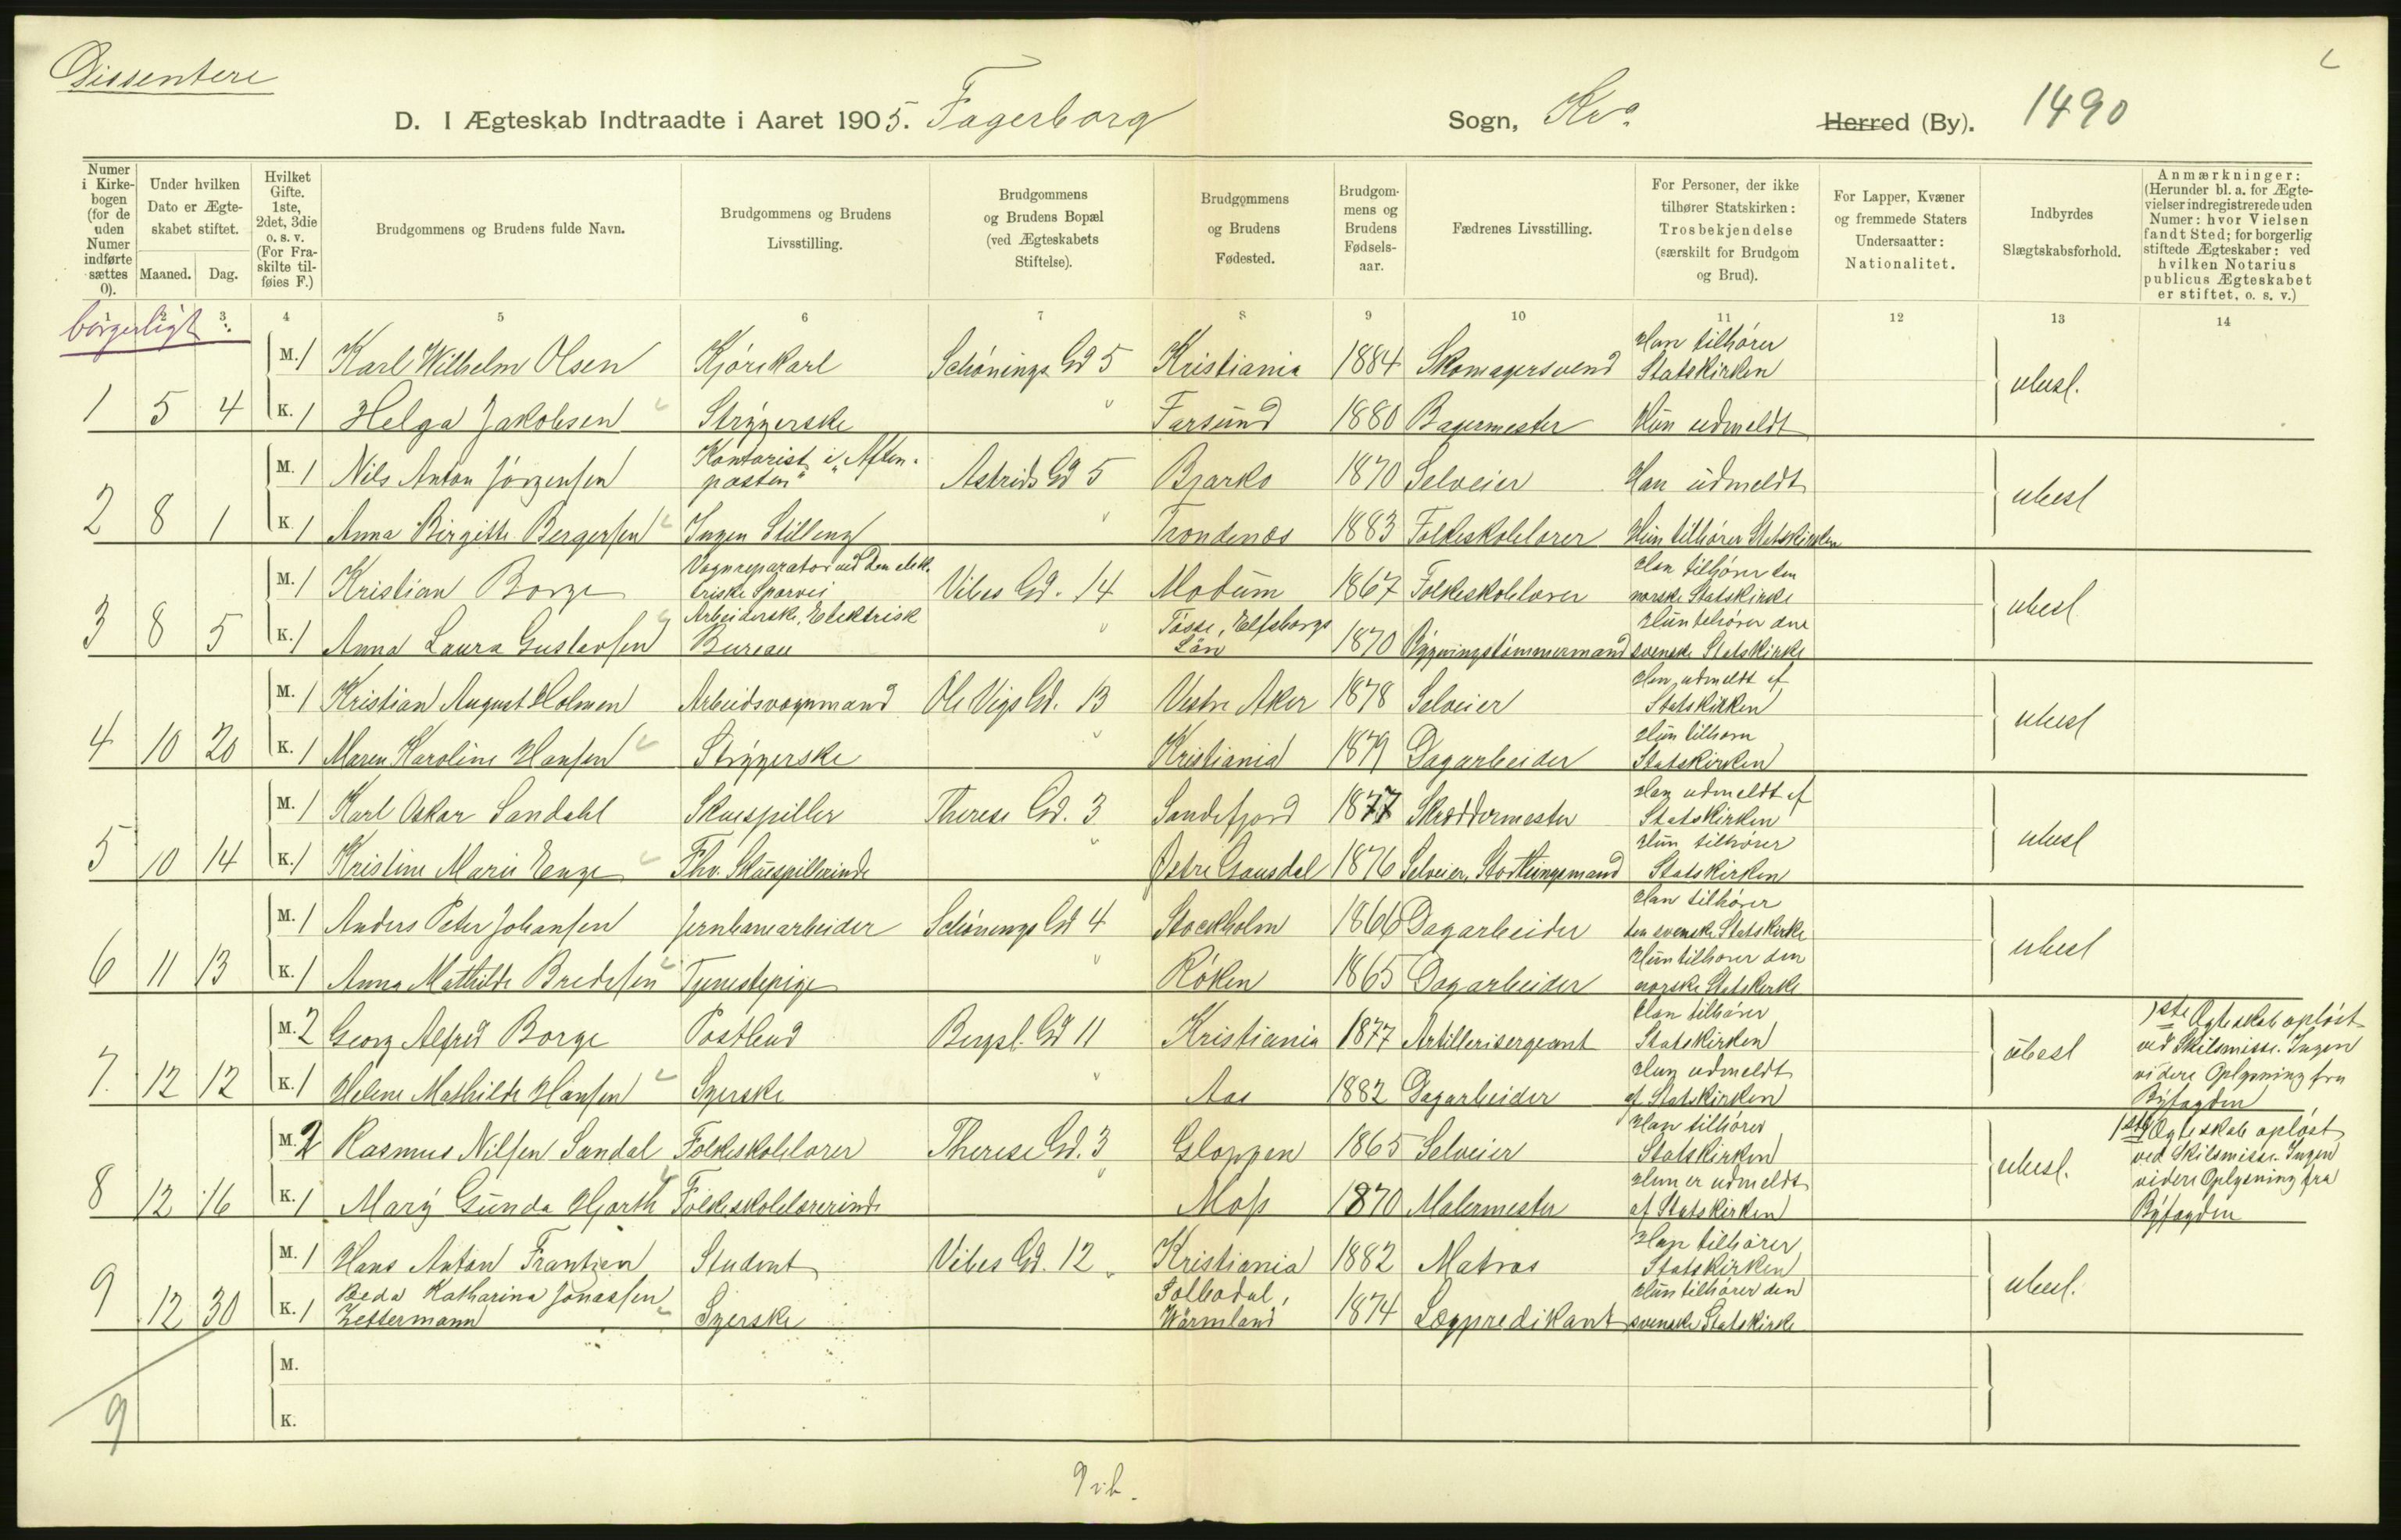 Dissentere
D. I Ægteskab Indtraadte i Aaret 1905. Fagerborg Sogn, Kra. Herred (By). 1490
Numer i Kirkebogen (for de uden Numer indførte sættes 0).
Under hvilken Dato er Ægteskabet stiftet.
Maaned. Dag.
Hvilket Gifte. 1ste, 2det, 3die o. s. v. (For Fraskilte tilføies F.)
Brudgommens og Brudens fulde Navn.
Brudgommens og Brudens Livsstilling.
Brudgommens og Brudens Bopæl (ved Ægteskabets Stiftelse).
Brudgommens og Brudens Fødested.
Brudgommens og Brudens Fødselsaar.
Fædrenes Livsstilling.
For Personer, der ikke tilhører Statskirken: Trosbekjendelse (særskilt for Brudgom og Brud).
For Lapper, Kvæner og fremmede Staters Undersaatter: Nationalitet.
Indbyrdes Slægtskabsforhold.
Anmærkninger: (Herunder bl. a. for Ægtevielser indregistrerede uden Numer: hvor Vielsen fandt Sted; for borgerlig stiftede Ægteskaber: ved hvilken Notarius publicus Ægteskabet er stiftet, o. s. v.)
3 4 5 6 7 8 9 10 11 12 13 14
borgerligt:
M. 1 Karl Wilhelm Olsen Kjørekarl Schønings Gd 5 Kristiania 1884 Skomagersvend Han tilhører Statskirken ubesl.
1 5 4 K. 1 Helga Jakobsen Strygerske " Farsund 1880 Bagermester Hun udmeldt
M. 1 Nils Anton Jørgensen Kontorist i "Aftenposten" Astrids Gd 5 Bjarkø 1870 Selveier Han udmeldt ubesl
2 8 1 K. 1 Anna Birgitte Bergersen Ingen Stilling " Trondenæs 1883 Folkeskolelærer Hun tilhører Statskirken
M. 1 Kristian Borge Vognreparatør ved den elektriske Sporvei Vibes Gd. 14 Modum 1867 Folkeskolelærer Han tilhører den norske Statskirke ubesl
3 8 5 K. 1 Anna Laura Gustavsen Arbeiderske, Elektrisk Bureau " Tösse, Elfsborgs Län 1870 Bygningstømmermand Hun tilhører den svenske Statskirke
M. 1 Kristian August Holmen Arbeidsvognmand Ole Vigs Gd. 13 Vestre Aker 1878 Selveier Han udmeldt af Statskirken ubesl
4 10 20 K. 1 Maren Karoline Hansen Strygerske " Kristiania 1879 Dagarbeider Hun tilhører Statskirken
M. 1 Karl Oskar Sandahl Skuespiller Therese Gd. 3 Sandefjord 1877 Skræddermester Han udmeldt af Statskirken ubesl
5 10 14 K. 1 Kristine Marie Enge Fhv. Skuespillerinde " Østre Gausdal 1876 Selveier, Storthingsmand Hun tilhører Statskirken
M. 1 Anders Peter Johansen Jernbanearbeider Schønings Gd 4 Stockholm 1866 Dagarbeider Han tilhører den svenske Statskirke ubesl
6 11 13 K. 1 Anna Mathilde Bredesen Tjenestepige " Røken 1865 Dagarbeider Hun tilhører den norske Statskirke
M. 2 Georg Alfred Borge Postbud Bergsl. Gd 11 Kristiania 1877 Artillerisergeant Han tilhører Statskirken ubesl 1ste Ægteskab opløst ved Skilsmisse. Ingen videre Oplysning fra Byfogden
7. 12 12 K. 1 Helene Mathilde Hansen Syerske " Aas 1882 Dagarbeider Hun udmeldt af Statskirken
M. 2 Rasmus Nilsen Sandal Folkeskolelærer Therese Gd. 3 Gloppen 1865 Selveier Han tilhører Statskirken ubesl. 1ste Ægteskab opløst ved Skilsmisse. Ingen videre Oplysning fra Byfogden
8 12 16 K. 1 Mary Gunda Hjorth Folkeskolelærerinde " Moss 1870 Malermester Hun er udmeldt af Statskirken
M. 1 Hans Anton Frantzen Student Vibes Gd. 12 Kristiania 1882 Matros Han tilhører Statskirken ubesl.
9 12 30 K. 1 Beda Katharina Jonassen Zettermann Syerske " Wärmland 1874 Lægprædikant Hun tilhører den svenske Statskirke
M.
9 K.
9